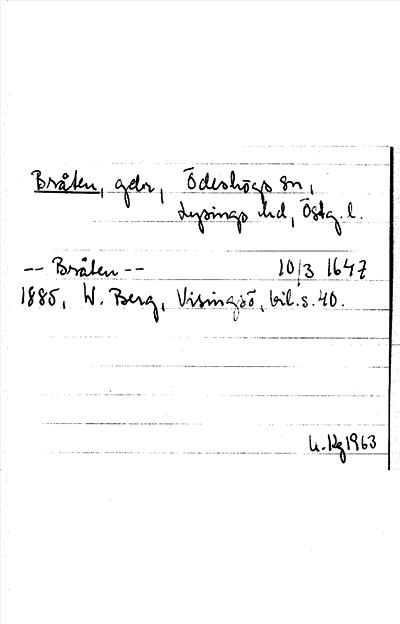 Bråten, gdr, Ödeshögs sn,
Lysings hd, Östg. l.
-- Bråten -- 10/3 1647
1885, W. Berg, Visingsö, bil. s. 40.
1963